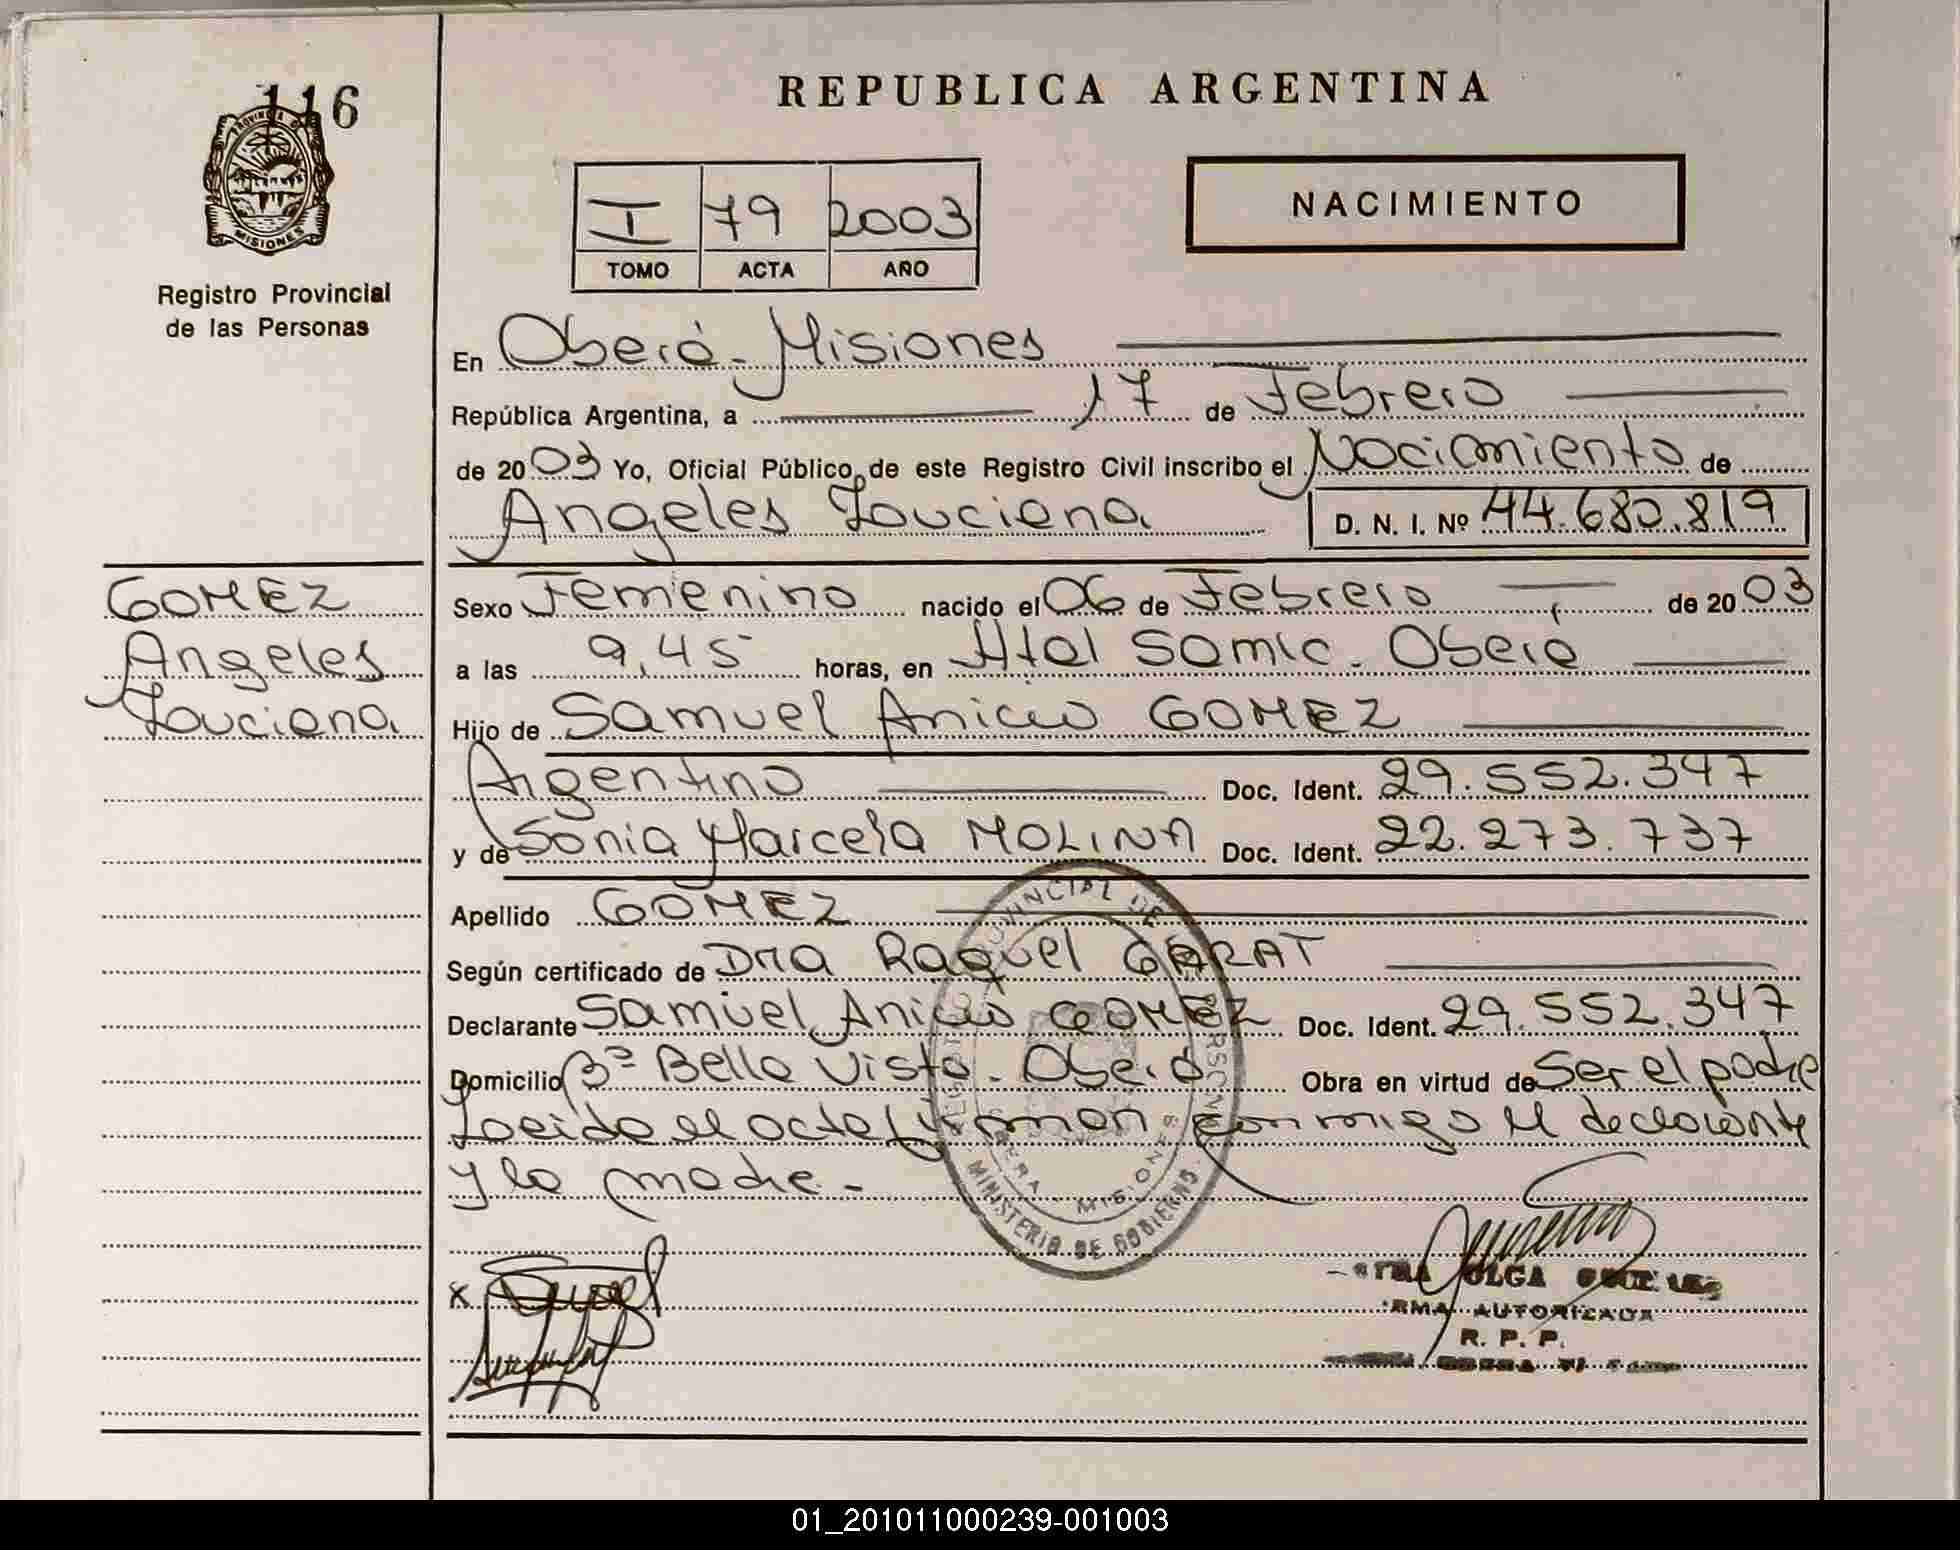 116
PROVINCIA DE
MISIONES
Registro Provincial
de las Personas
REPUBLICA ARGENTINA
I 79 2003
TOMO ACTA AÑO
NACIMIENTO
En Oberá - Misiones
República Argentina, a 17 de Febrero
de 2003 Yo, Oficial Público de este Registro Civil inscribo el Nacimiento de
Angeles Louciana D. N. I. Nº 44.680.819
GOMEZ
Angeles
Louciana
Sexo Femenino nacido el 06 de Febrero de 2003
a las 9,45 horas, en Htal Samic. Oberá
Hijo de Samuel Anicio GOMEZ
Argentino Doc. Ident. 29.552.347
y de Sonia Marcela MOLINA Doc. Ident. 22.273.737
Apellido GOMEZ
Según certificado de Dra Raquel GARAT
Declarante Samuel Anicio GOMEZ Doc. Ident. 29.552.347
Domicilio Bº Bella Vista - Oberá Obra en virtud de Ser el padre
Leida el acta firman conmigo el declarante
y la madre. -
PROVINCIAL DE
OBERA - MISIONES
MINISTERIO DE GOBIERNO
x
OLGA
AUTORIZADA
R. P. P.
01_201011000239-001003